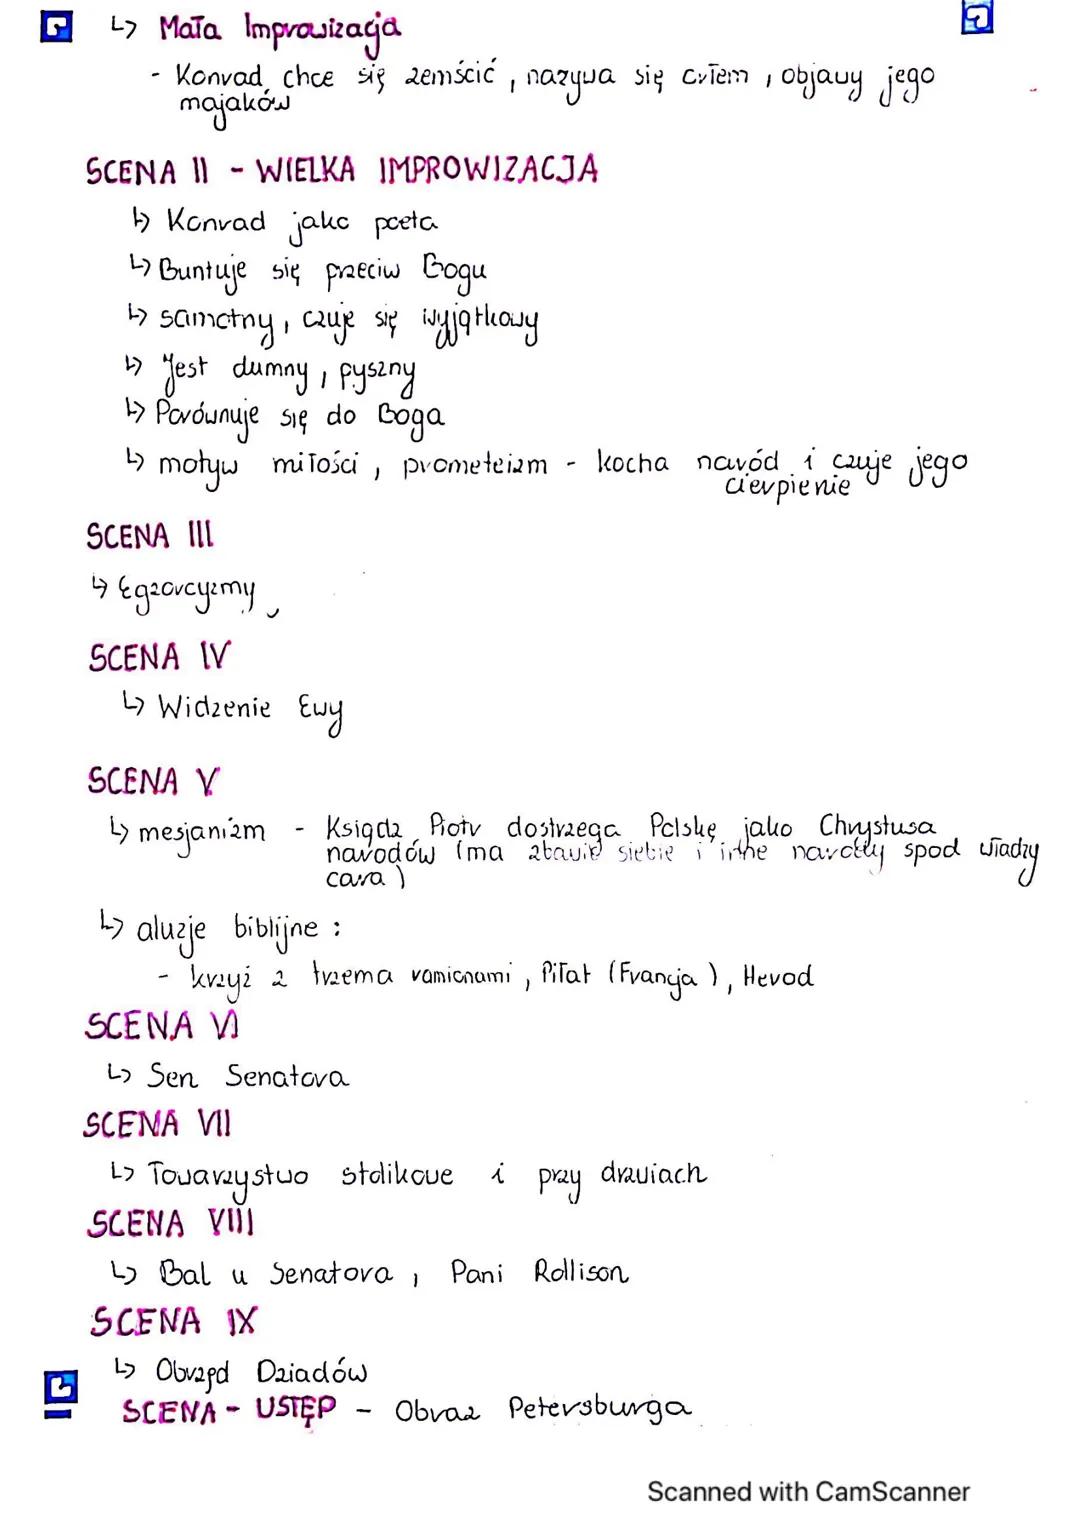 ↳ Mała Improwizacja
- Konrad chce się zemścić, nazywa się orłem, objawy jego
majaków
SCENA II - WIELKA IMPROWIZACJA
↳ Konrad jako poeta
↳ Buntuje się przeciw Bogu
↳ samotny, czuje się wyjątkowy
↳ Jest dumny, pyszny
↳ Porównuje się do Boga
↳ motyw miłości, prometeizm - kocha naród i czuje jego
cierpienie
SCENA III
↳ Egzorcyzmy
SCENA IV
↳ Widzenie Ewy
SCENA V
↳ mesjanizm - Ksiądz Piotr dostrzega Polskę jako Chrystusa
narodów (ma zbawić siebie i inne narody spod władzy
cara)
↳ aluzje biblijne:
- krzyż z trzema ramionami, Piłat (Francja), Herod
SCENA VI
↳ Sen Senatora
SCENA VII
↳ Towarzystwo stolikowe i przy drzwiach
SCENA VIII
↳ Bal u Senatora, Pani Rollison
SCENA IX
↳ Obrzęd Dziadów
SCENA - USTĘP - Obraz Petersburga
Scanned with CamScanner